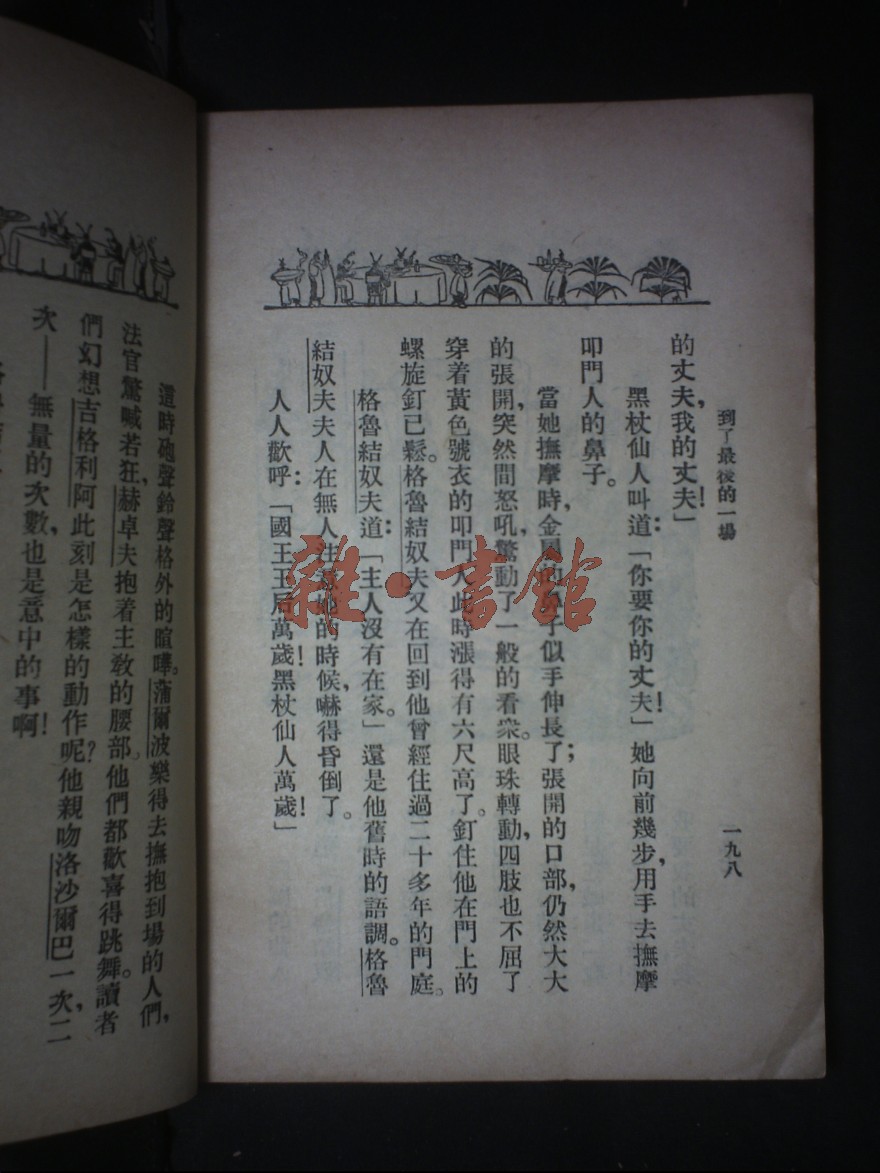 到了最後的一場
一九八
的丈夫，我的丈夫！」
黑杖仙人叫道：「你要你的丈夫！」她向前幾步，用手去撫摩
叩門人的鼻子。
當她撫摩時，金屬的鼻子似乎伸長了；張開的口部，仍然大大
的張開，突然間怒吼，驚動了一般的看衆。眼珠轉動，四肢也不屈了
穿着黃色號衣的叩門人此時漲得有六尺高了。釘住他在門上的
螺旋釘已鬆。格魯結奴夫又在回到他曾經住過二十多年的門庭。
格魯結奴夫道：「主人沒有在家。」還是他舊時的語調。格魯
結奴夫夫人在無人注意她的時候，嚇得昏倒了。
人人歡呼：「國王王后萬歲！黑杖仙人萬歲！」
這時砲聲鈴聲格外的喧嘩。蒲爾波樂得去撫抱到場的人們，
法官驚喊若狂，赫卓夫抱着主敎的腰部。他們都歡喜得跳舞。讀者
們幻想吉格利阿此刻是怎樣的動作呢？他親吻洛沙爾巴一次，二
次——無量的次數，也是意中的事啊！
雜·書館